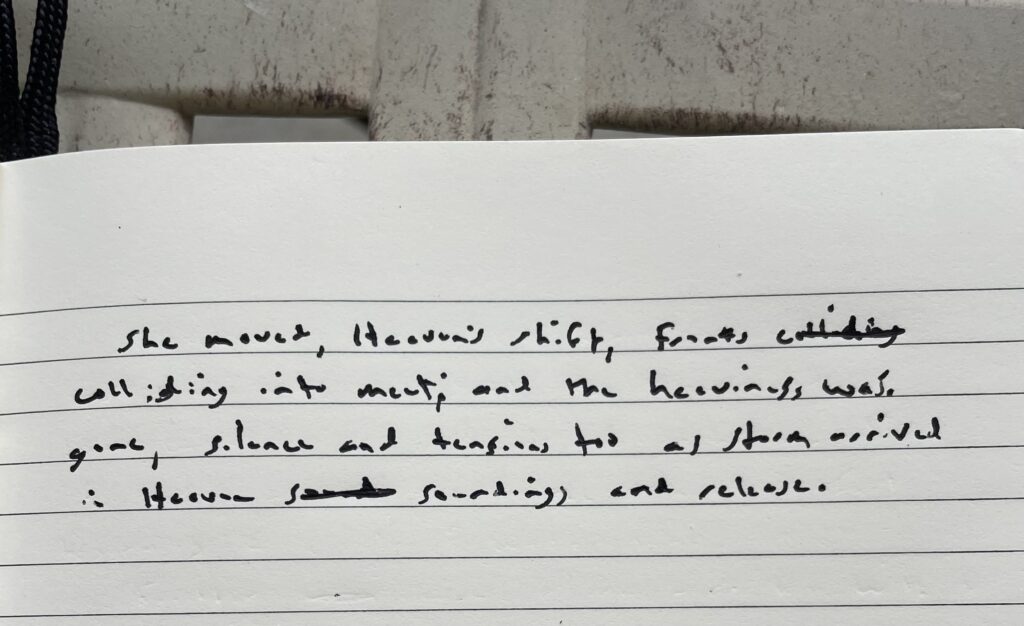 She moved, Heaven's shift, fronts colliding
colliding into meet; and the heaviness was
gone, silence and tension too as storm arrived
in Heaven sound soundings and release.